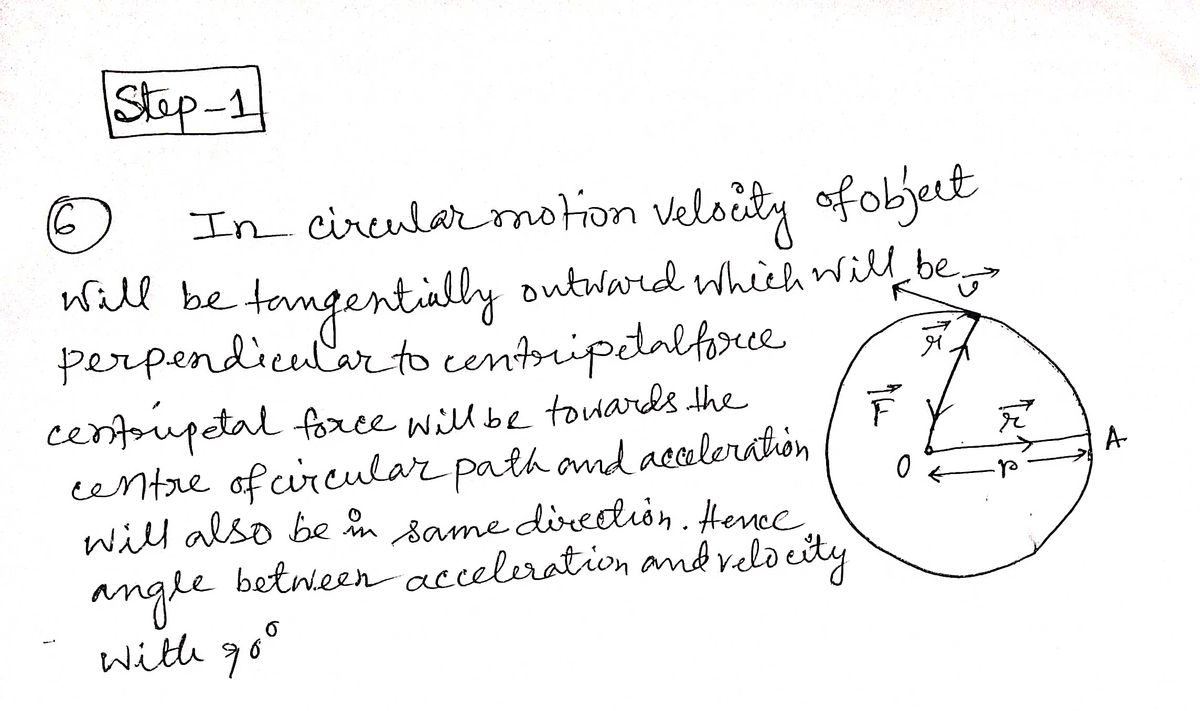 Step-1
6 In circular motion velocity of object
will be tangentially outward which will be
perpendicular to centripetal force
centripetal force will be towards the
centre of circular path and acceleration
will also be in same direction. Hence
angle between acceleration and velocity
with 90°
v
r
F
r
A
O
r